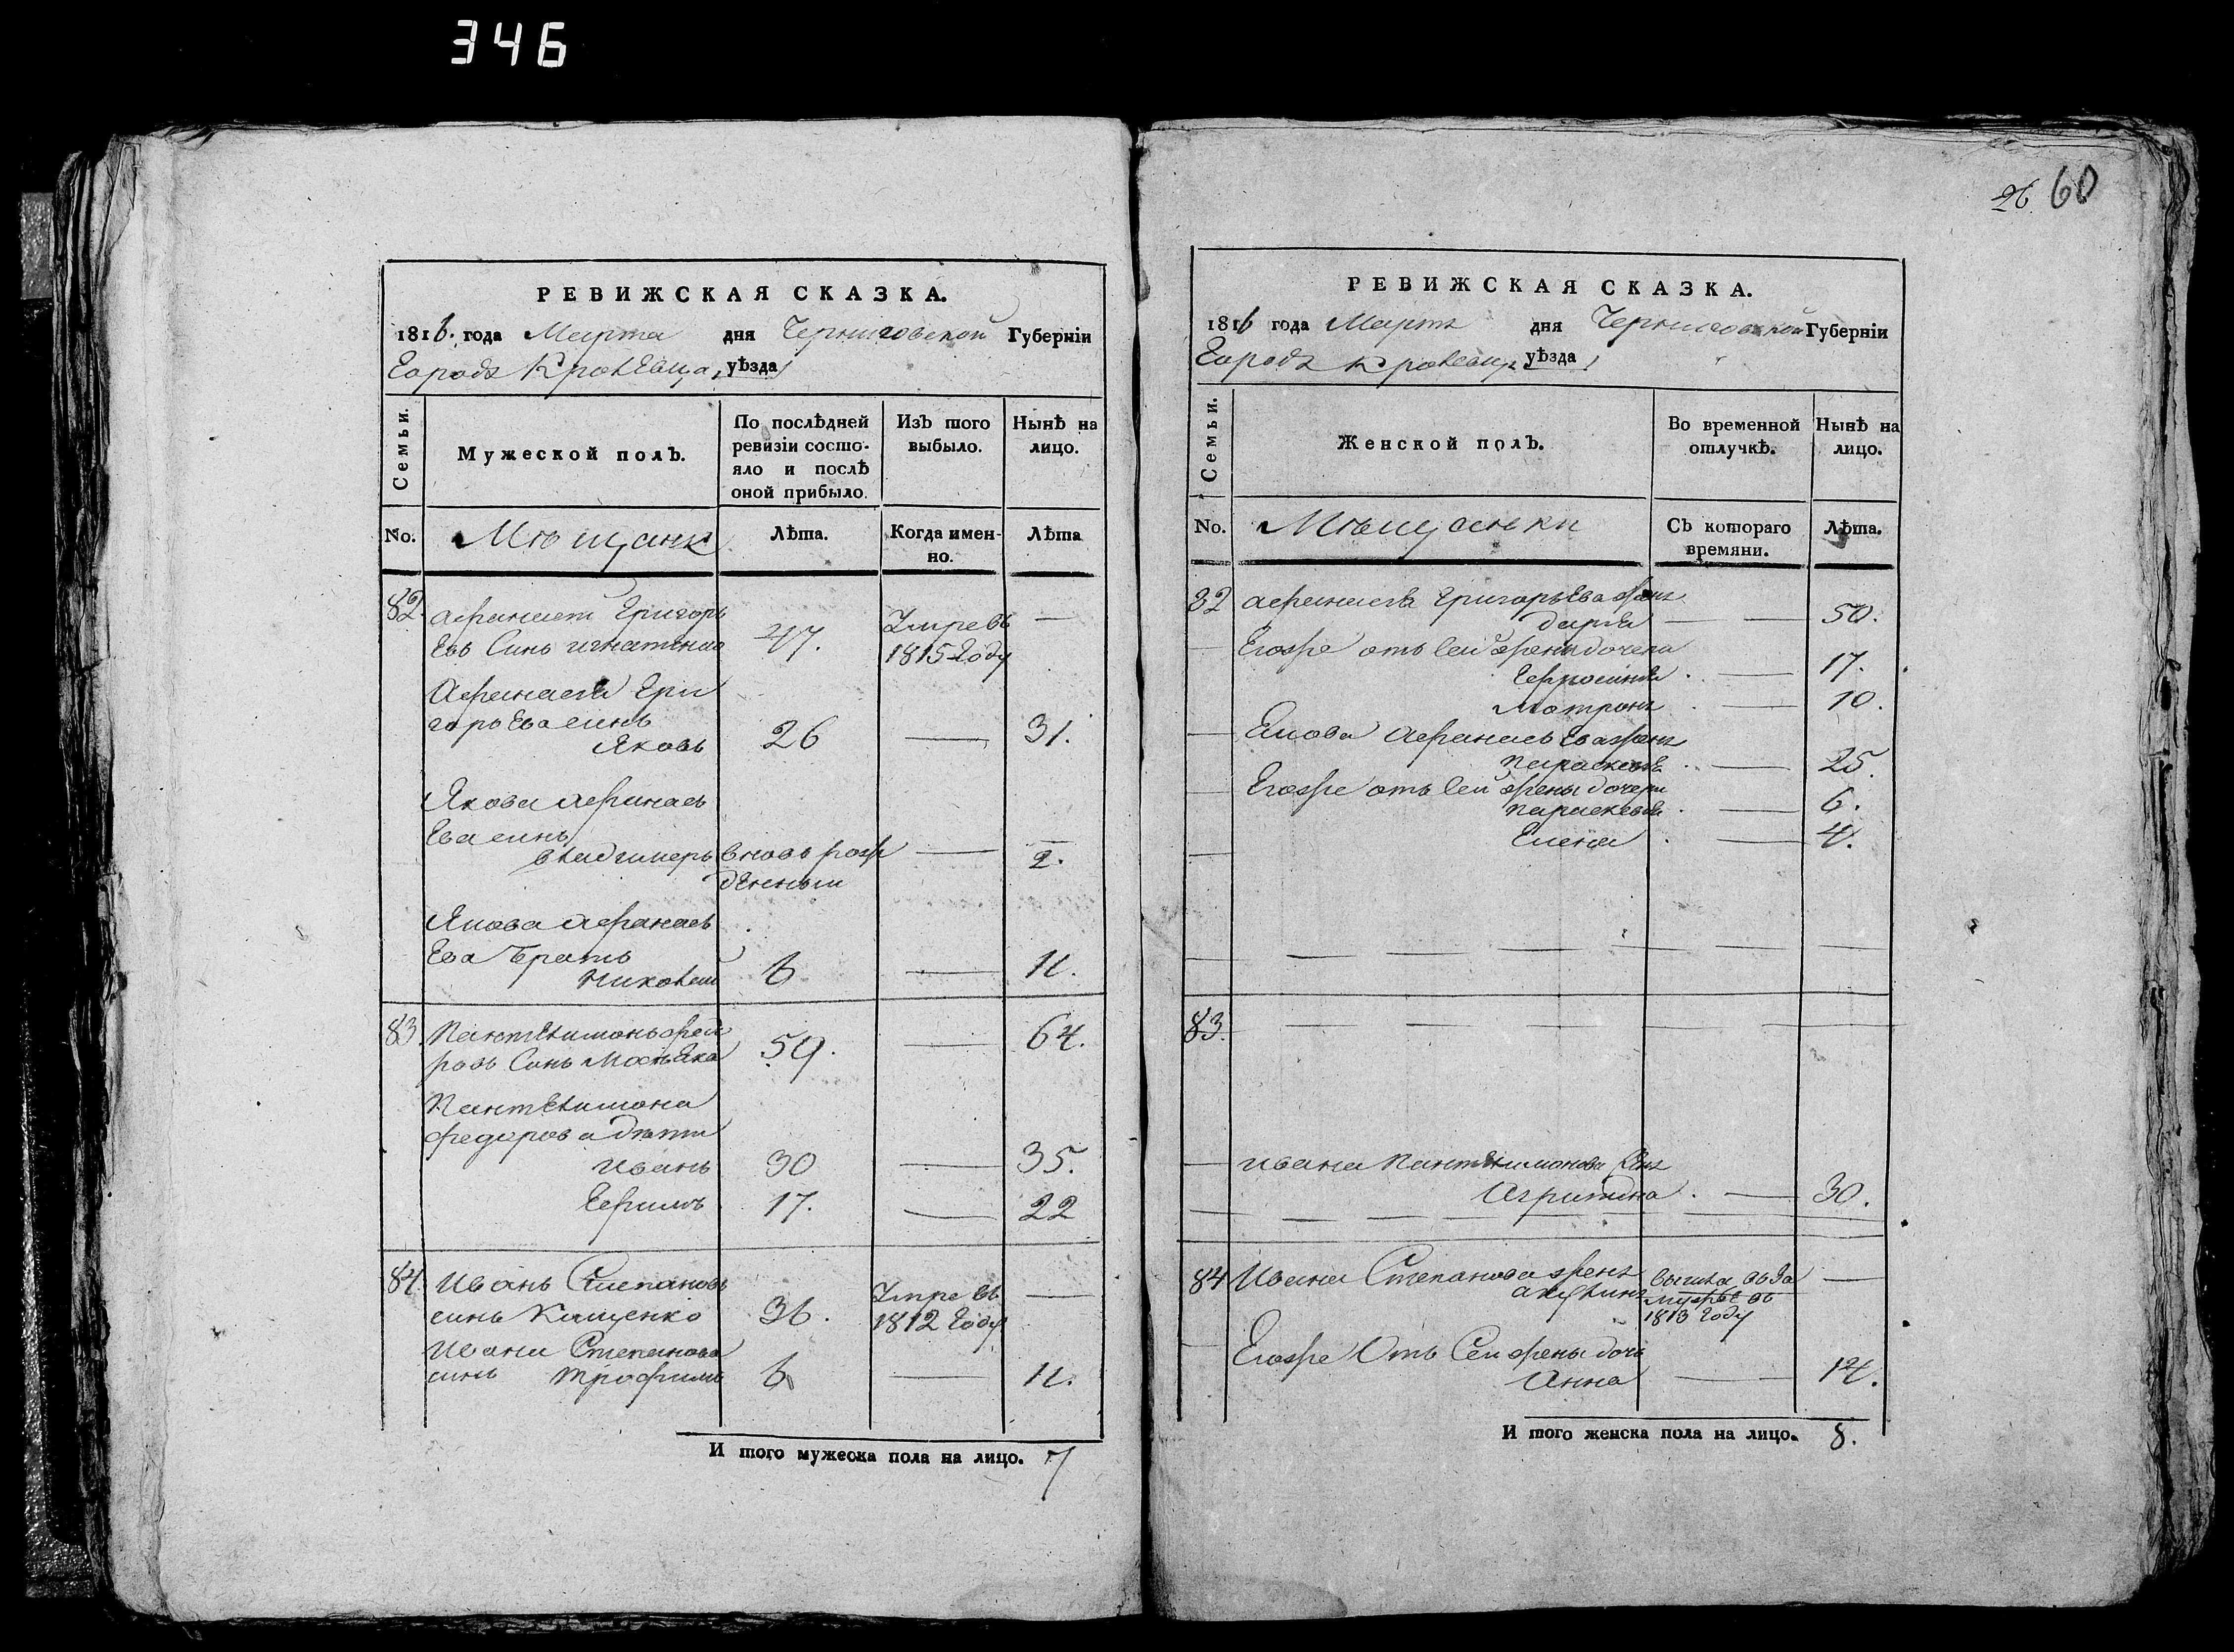 346
РЕВИЖСКАЯ СКАЗКА.
1816. года Марта дня Черниговской Губерніи
Города Кролевца, уѣзда
Семьи.
Мужеской полЪ.
По послѣдней ревизіи состояло и послѣ оной прибыло.
ИзЪ того выбыло.
Нынѣ на лицо.
No.
Мѣщанъ
Лѣта.
Когда именно.
Лѣта
82. Афанасей Григорь
евъ Синъ Игнатенко 47. Умре въ 1815 году —
Афанасея Гри
горьева синъ
Яковъ 26 — 31.
Якова Афанась
ева синъ
Владимеръ вновь рож
денный — 2.
Якова Афанась
ева братъ
Николай 6 — 11.
83. Пантелимонъ Федо
ровъ Синъ 59. — 64.
Пантелимона
Федорова дѣти
Иванъ 30 — 35.
Ефимъ 17. — 22
84. Иванъ Степановъ
синъ Кащенко 36. Умре въ 1812 году —
Ивана Степанова
синъ Трофимъ 6 — 11.
И того мужеска пола на лицо. 7
26. 60
РЕВИЖСКАЯ СКАЗКА.
1816 года Марта дня Черниговской Губерніи
Города Кролевца уѣзда
Семьи.
Женской полЪ.
Во временной отлучкѣ.
Нынѣ на лицо.
No.
Мѣщанки
СЪ котораго времяни.
Лѣта.
82 Афанасея Григорьева жена
Дарья — — 50.
Егожъ отъ сей жены дочери
Ефросинья — 17.
Мотрона — 10.
Якова Афанасьева жена
Параскевья — 25.
Егожъ отъ сей жены дочери
Параскевья — 6.
Елена — 4.
83.
Ивана Пантелимонова жена
Агрипина — 30.
84 Ивана Степанова жена
Акулина вышла въ за
мужье въ
1813 году —
Егоже Отъ Сей жены дочь
Анна — 14.
И того женска пола на лицо. 8.